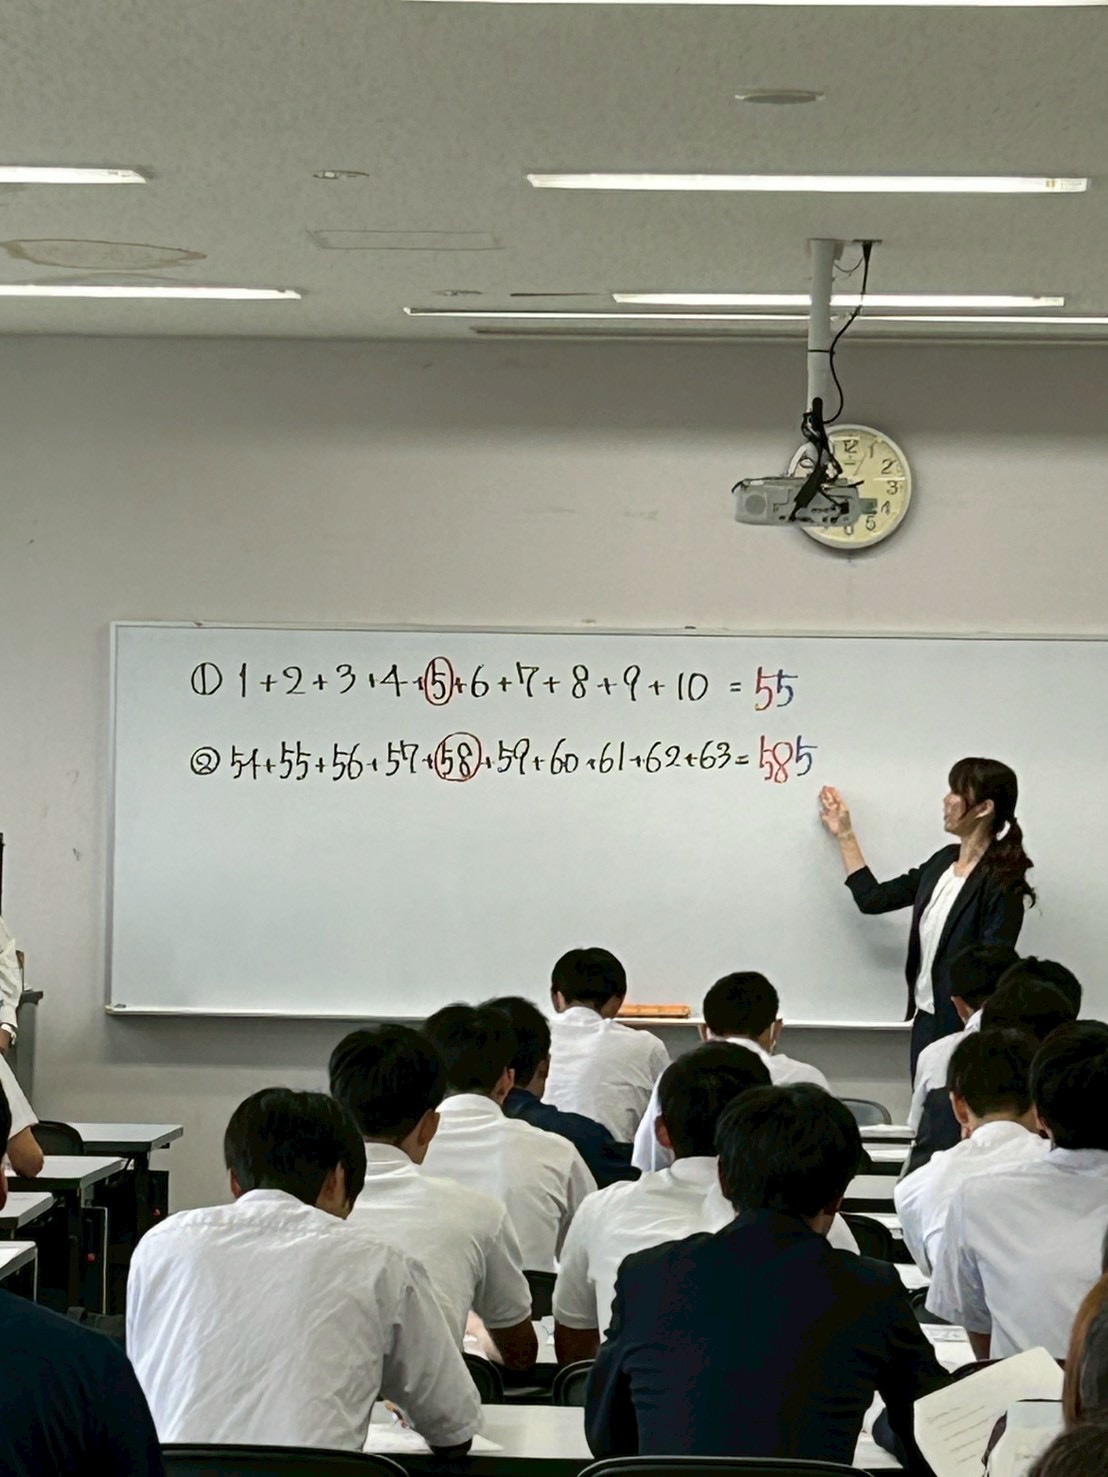 12
1
2
3
4
5
6
① 1+2+3+4+5+6+7+8+9+10 = 55
② 54+55+56+57+58+59+60+61+62+63= 585